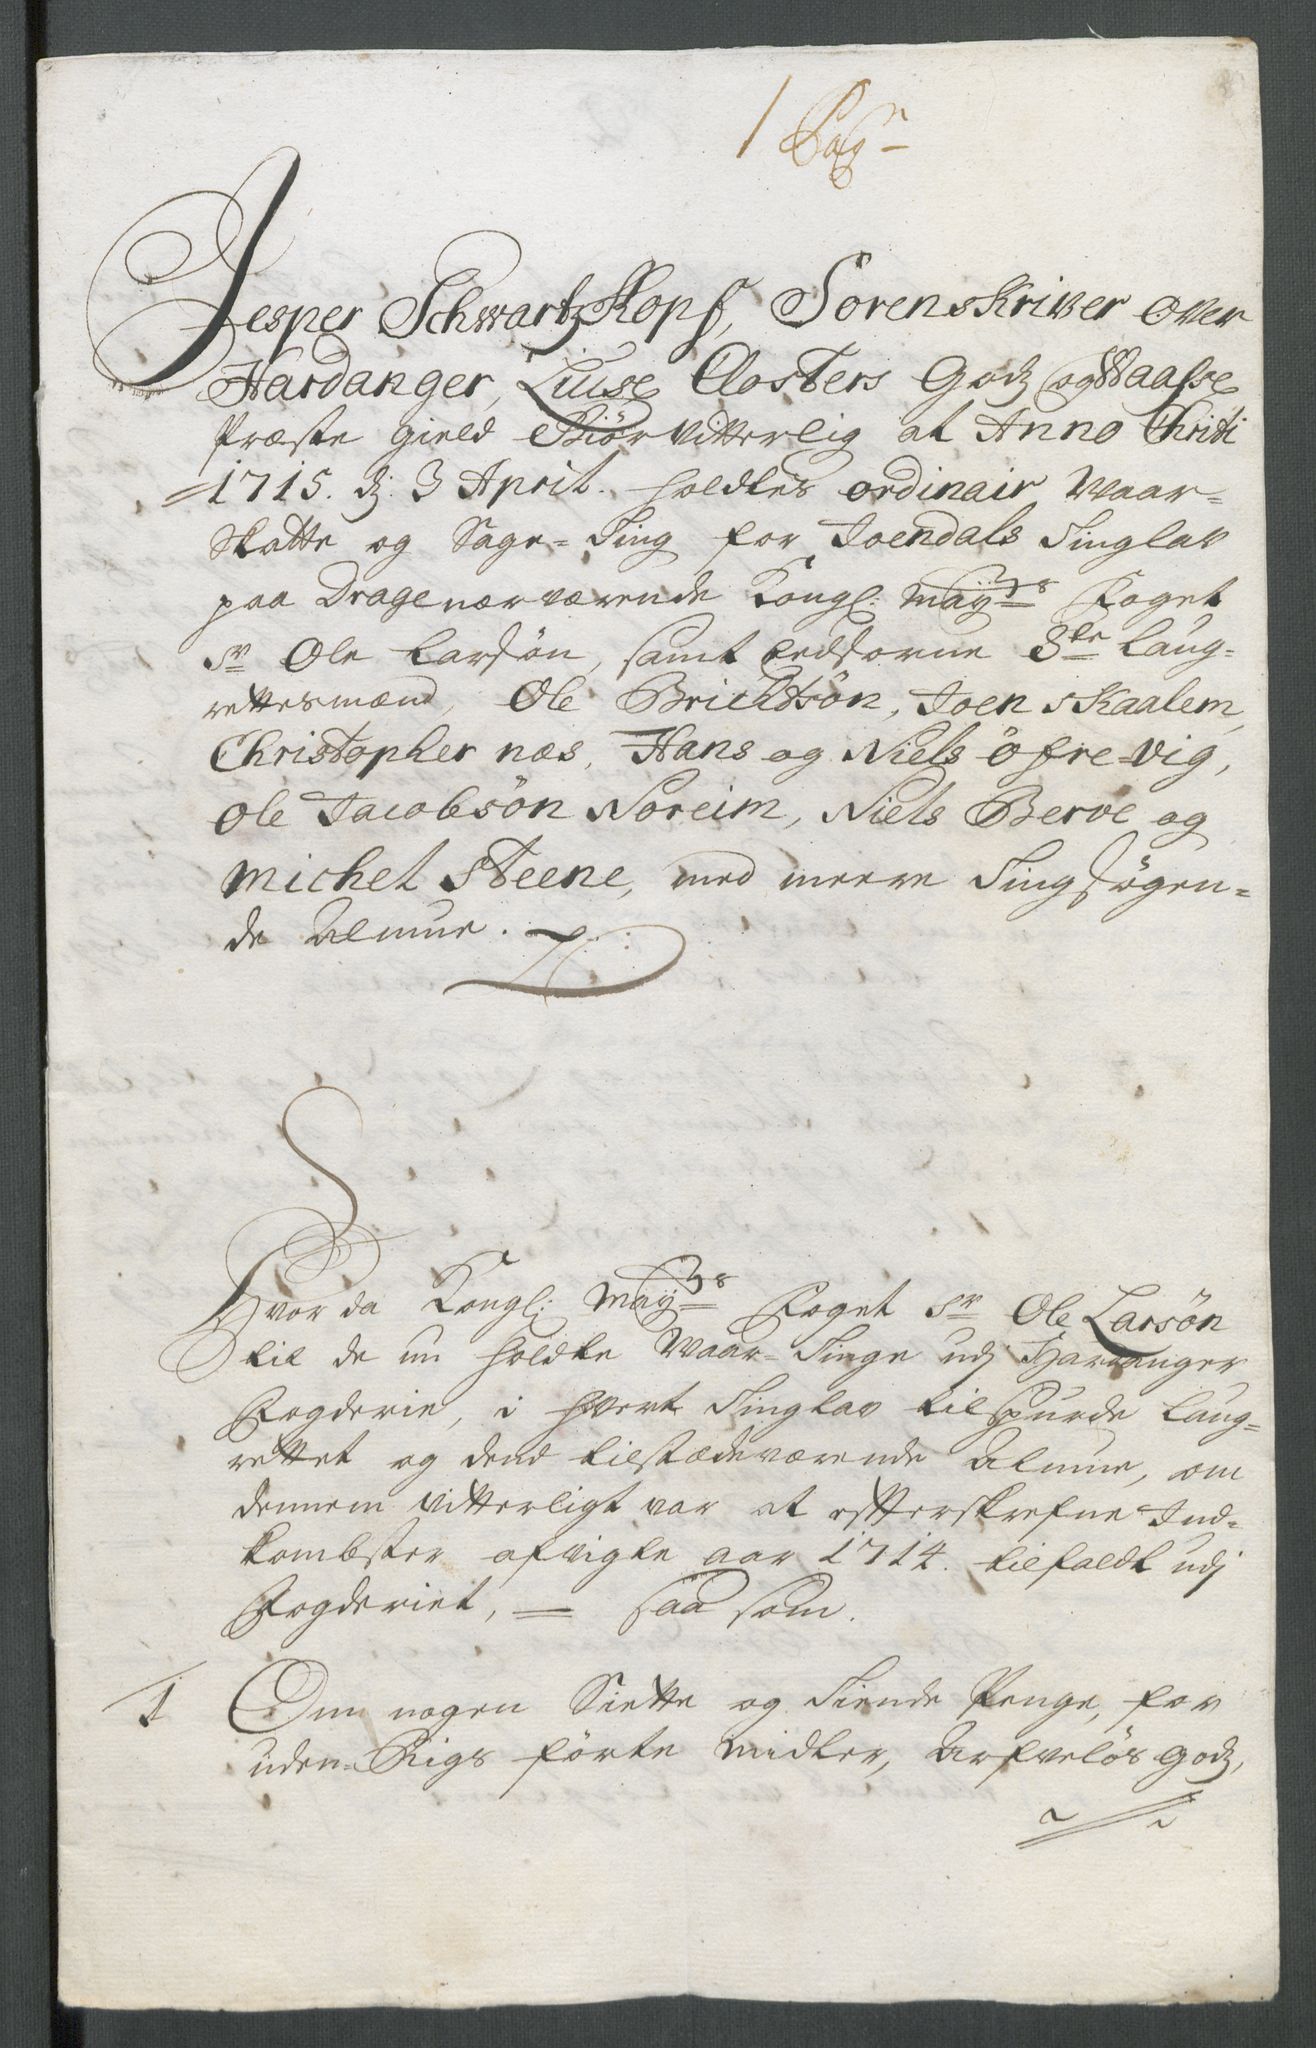 1 Pag:
Jesper Schwartzkopf, Sorenskriver over
Hardanger, Luise Closters Godz og Waasse
Præste gield Giør vitterlig at Anno Christi
1715. d. 3 April. holdtes ordinair Waar-
Skatte og Sage-Ting for Joendals Tinglav
paa Drage nærværende Kongl: May:ts Foget
Sr Ole Larsøn, samt Eedsorne 8te Laug-
rettesmænd, Ole Brichtsøn, Joen Skaalem,
Christopher næs, Hans og Niels öfre-vig,
Ole Jacobsön Soreim, Niels Berve og
Michel Steene, med meere Tingsøgen-
de Almue.
Hvor da Kongl: May:ts Foget Sr Ole Larsön
til de nu holdte Waar-Tinge udj Hardanger
Fogderie, i hvert Tinglav tilspurde Laug-
rettet og dend tilstædeværende Almue, om
dennem vitterligt var at efterskrefne Ind-
kombster afvigte aar 1714. tilfaldt udj
Fogderiet, – saa som.
1 Om nogen Siette og Tiende Penge, for
uden-Rigs förte midler, Arfvelös Godz,